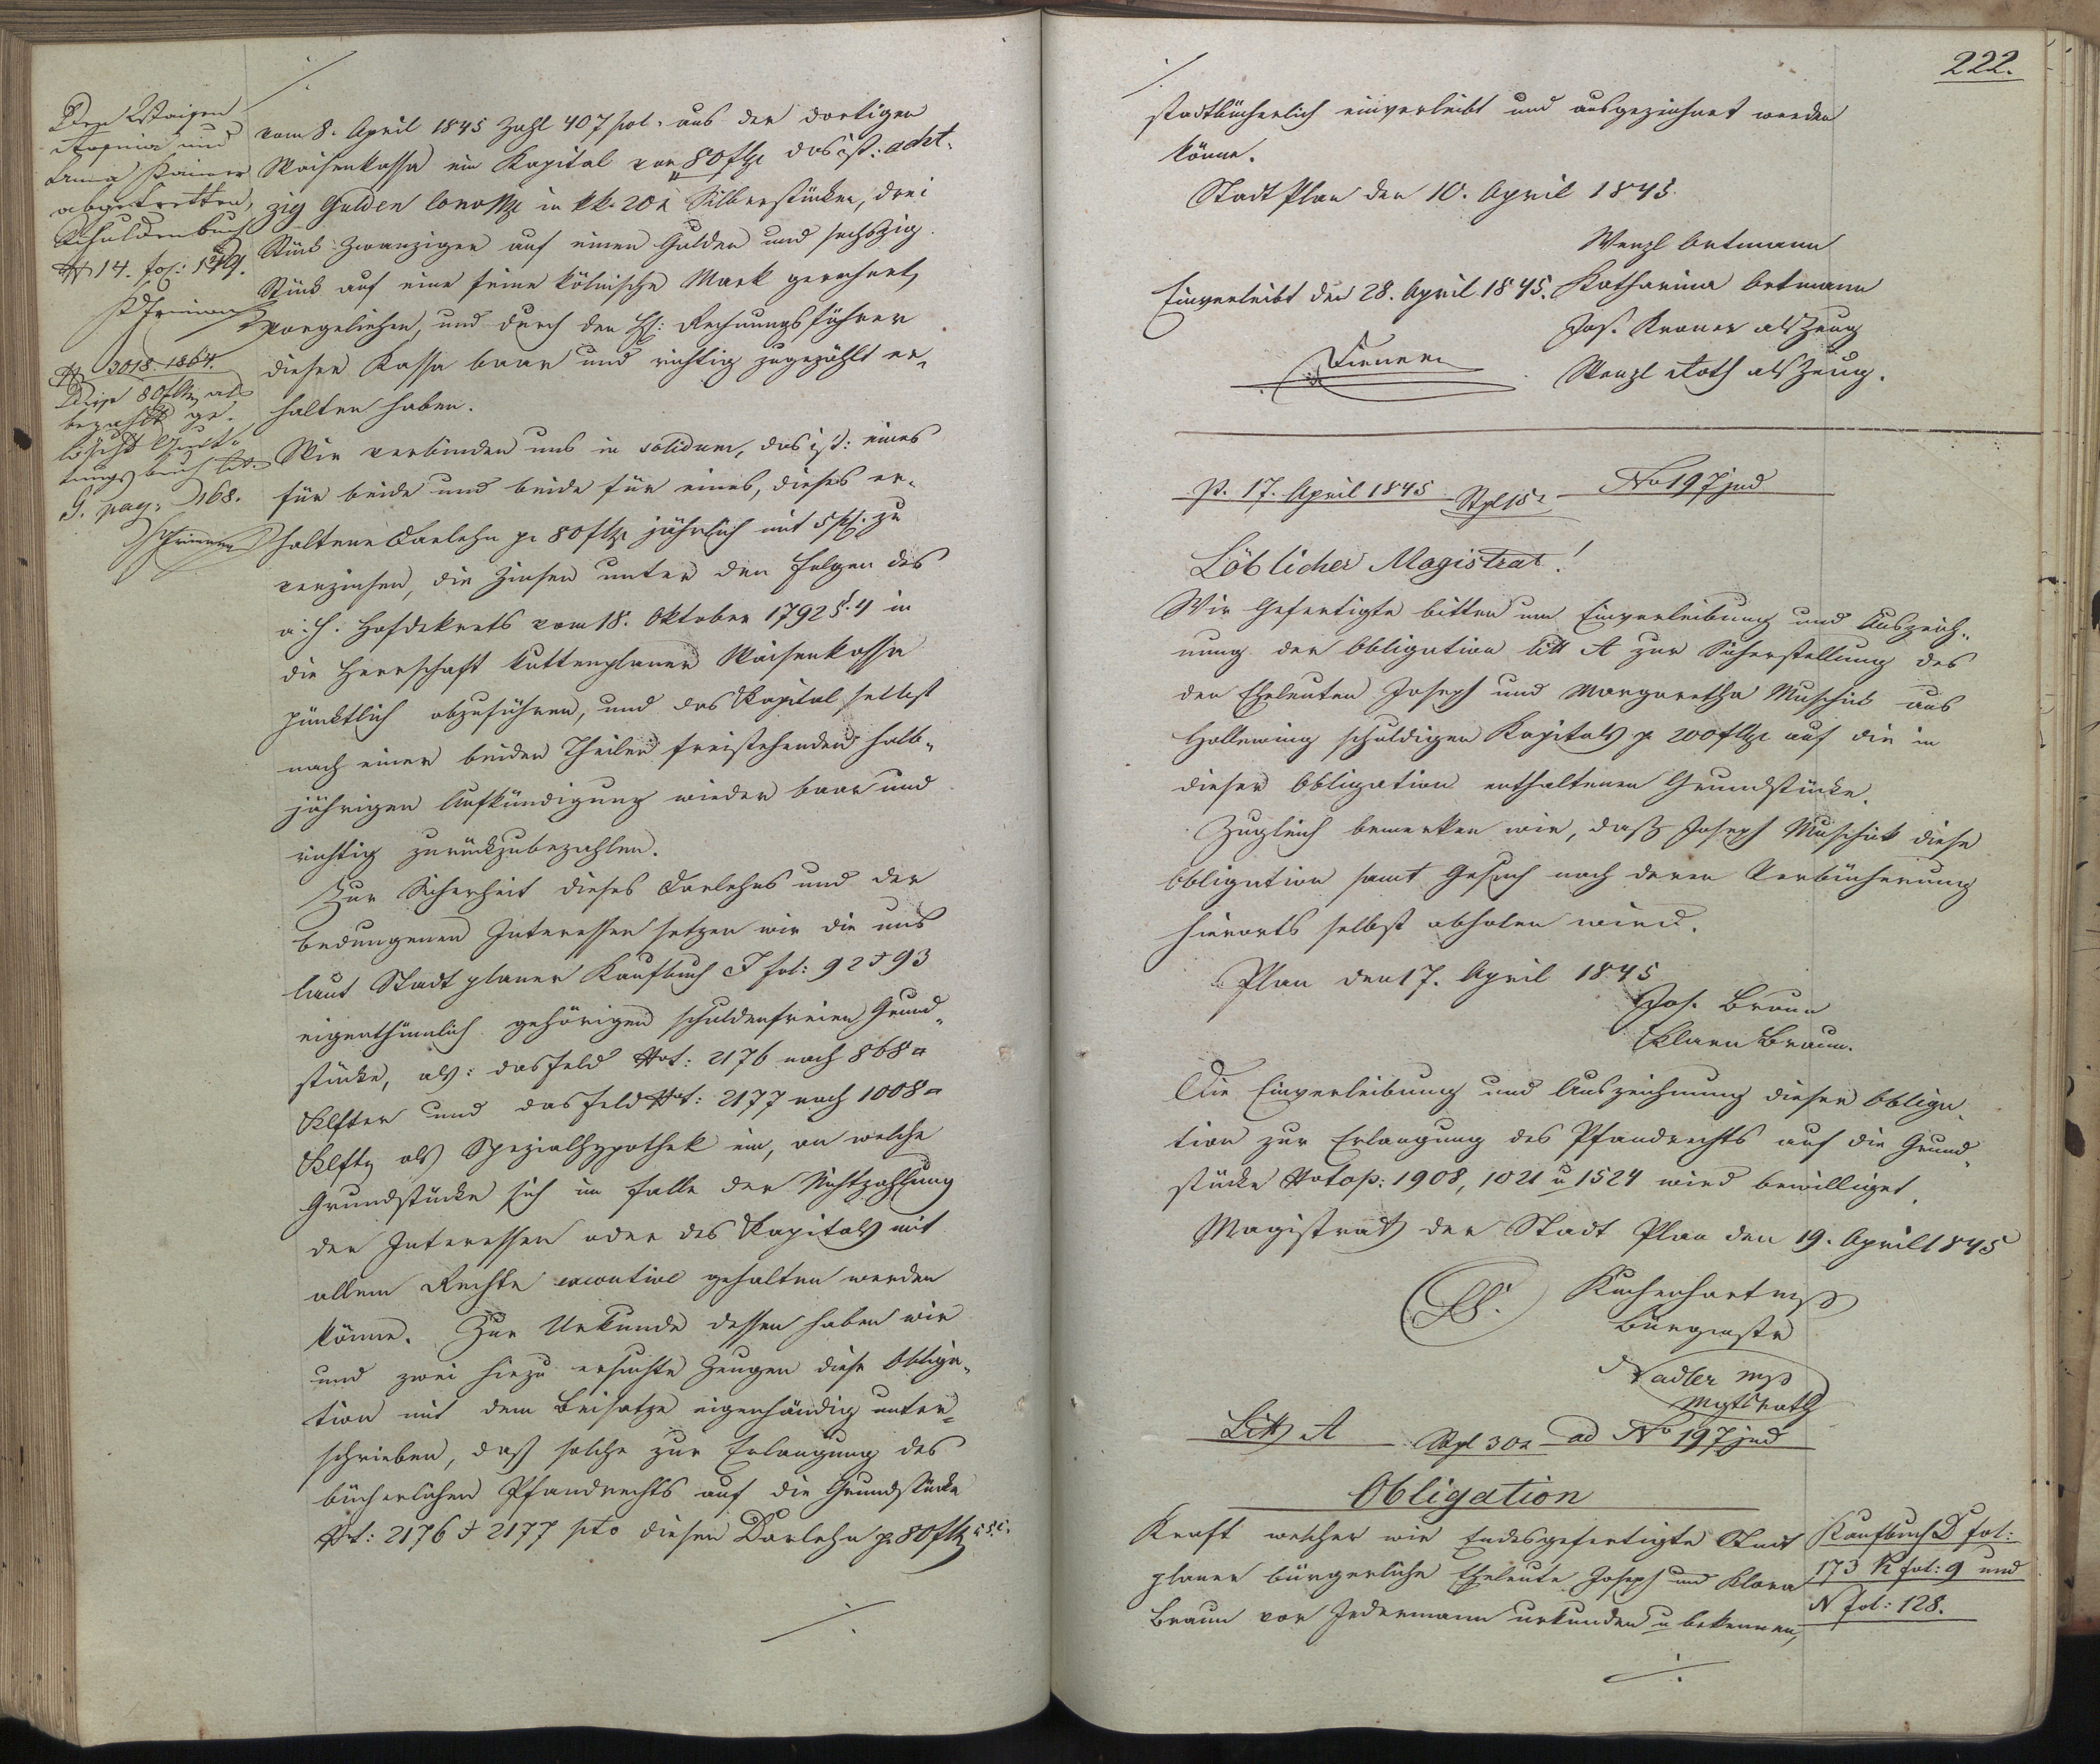 Den Waisen
Rosina und
Anna Painer
abgetretten,
Schuldenbuch
N 14. fol: 149.
N 3018. 1864.
Diese 80 fl als
bezahlt ge-
löscht Quit-
tungsbuch lit.
G. pag: 168.
./.
vom 8. April 1845 Zahl 407 pol. aus der dortigen
Waisenkassa ein Kapital von 80 f CMze das ist: acht-
zig Gulden Conv Mze in kk. 20 x Silberstücken, drei
Stück Zwanziger auf einen Gulden und sechszig
Stück auf eine feine kölnische Mark gerechnet,
vorgeliehen, und durch den H: Rechnungsführer
dieser Kassa baar und richtig zugezählt er-
halten haben.
Wir verbinden uns in solidum, das ist: eines
für beide und beide für eines, dieses er-
haltene Darlehn pr 80 f CMze jährlich mit 5 pc. zu
verzinsen, die Zinsen unter den Folgen des
a. h. Hofdekrets vom 18. Oktober 1792 §. 4 in
die Herrschaft Kuttenplaner Waisenkassa
pünktlich abzuführen, und das Kapital selbst
nach einer beiden Theilen freistehenden halb-
jährigen Aufkündigung wieder baar und
richtig zurückzubezahlen.
Zur Sicherheit dieses Darlehns und der
bedungenen Interessen setzen wir die uns
laut Stadt planer Kaufbuch J fol: 92 & 93
eigenthümlich gehörigen schuldenfreien Grund-
stücke, als: das Feld Nrot: 2176 nach 868 □
Klfter und das Feld Nrot: 2177 nach 1008 □
Klftr als Spezialhypothek ein, an welche
Grundstücke sich im Falle der Nichtzahlung
der Interessen oder des Kapitals mit
allem Rechte executive gehalten werden
könne. Zur Urkunde dessen haben wir
und zwei hiezu ersuchte Zeugen diese Obliga-
tion mit dem Beisatze eigenhändig unter-
schrieben, daß solche zur Erlangung des
bücherlichen Pfandrechts auf die Grundstücke
Nrt: 2176 & 2177 pto dieses Darlehn pr 80 f CMze c.s.c.
./.
222.
./.
stadtbücherlich einverleibt und ausgezeichnet werden
könne.
Stadt Plan den 10. April 1845.
Wenzl Ortmann
Einverleibt den 28. April 1845. Katharina Ortmann
Jos. Kroner als Zeug
Wenzl Roth als Zeug.
p. 17. April 1845 Stpl 15 x No 197 jud
Löblicher Magistrat!
Wir Gefertigte bitten um Einverleibung und Auszeich-
nung der Obligation litt A zur Sicherstellung des
den Eheleuten Joseph und Margaretha Muschick aus
Hollewing schuldigen Kapitals pr 200 f CMze auf die in
dieser Obligation enthaltenen Grundstücke.
Zugleich bemerken wir, daß Joseph Muschick diese
Obligation samt Gesuch nach deren Verbücherung
hierorts selbst abholen wird.
Plan den 17. April 1845
Jos. Braun
Klara Braun.
Die Einverleibung und Auszeichnung dieser Obliga-
tion zur Erlangung des Pfandrechts auf die Grund-
stücke Nrotop: 1908, 1021 u 1524 wird bewilliget.
Magistrat der Stadt Plan den 19. April 1845
LS.
Bürgmstr
Nadler mp
Mgtsrath
Litt A Stpl 30 x ad No 197 jud
Obligation
Kraft welcher wir Endesgefertigte Stadt
planer bürgerliche Eheleute Joseph und Klara
Braun vor Jedermann urkunden u bekennen,
Kaufbuch D fol:
173 K fol: 9 und
N fol: 128.
./.